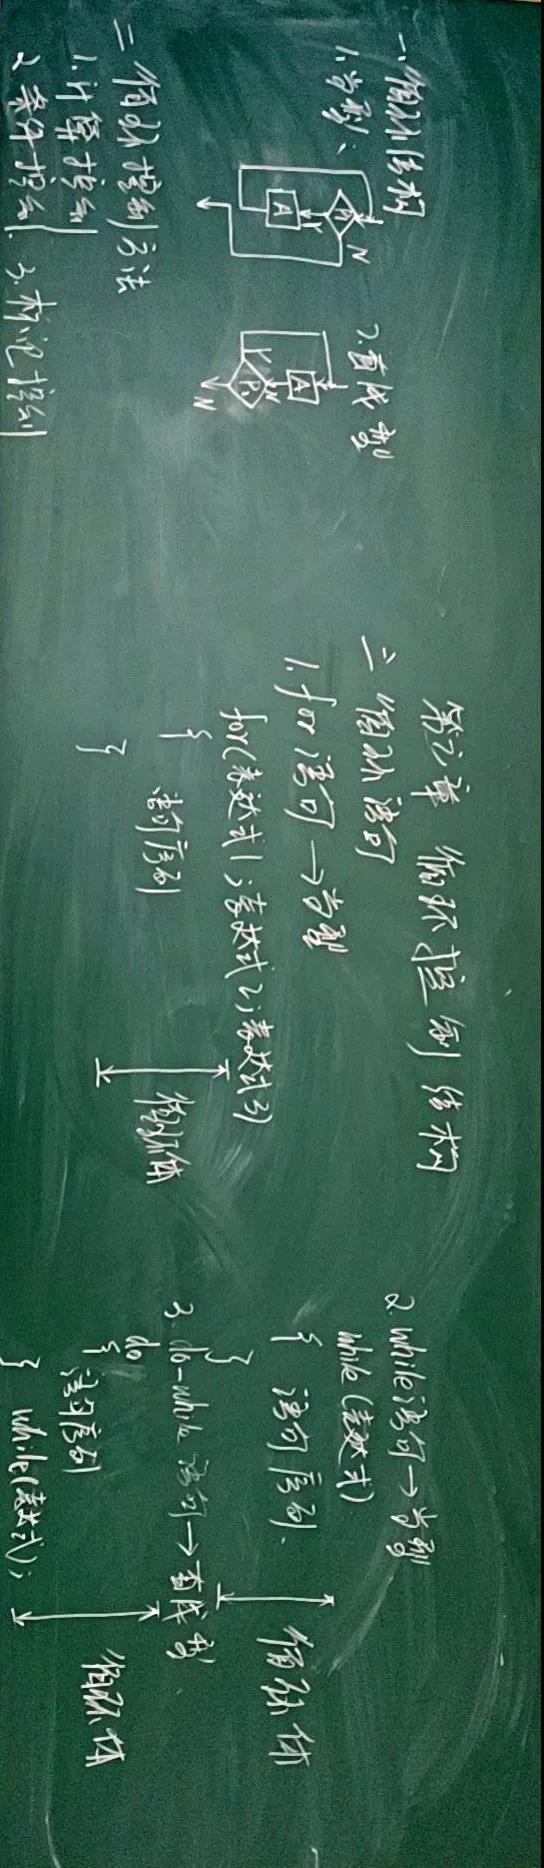 第六章 循环控制结构
一、循环结构
1.当型:
P1
Y
N
A
2.直成型
A
P2
Y
N
N
二 循环控制方法
1.计算控制
2 条件控制. 3.标记控制
三 循环语句
1.for 语句→当型
for(表达式1;表达式2;表达式3)
{
语句序列
}
循环体
2.while语句→当型
while(表达式)
{
语句序列.
}
循环体
3.do-while 语句→直成型
do
{
语句序列
} while(表达式);
循环体